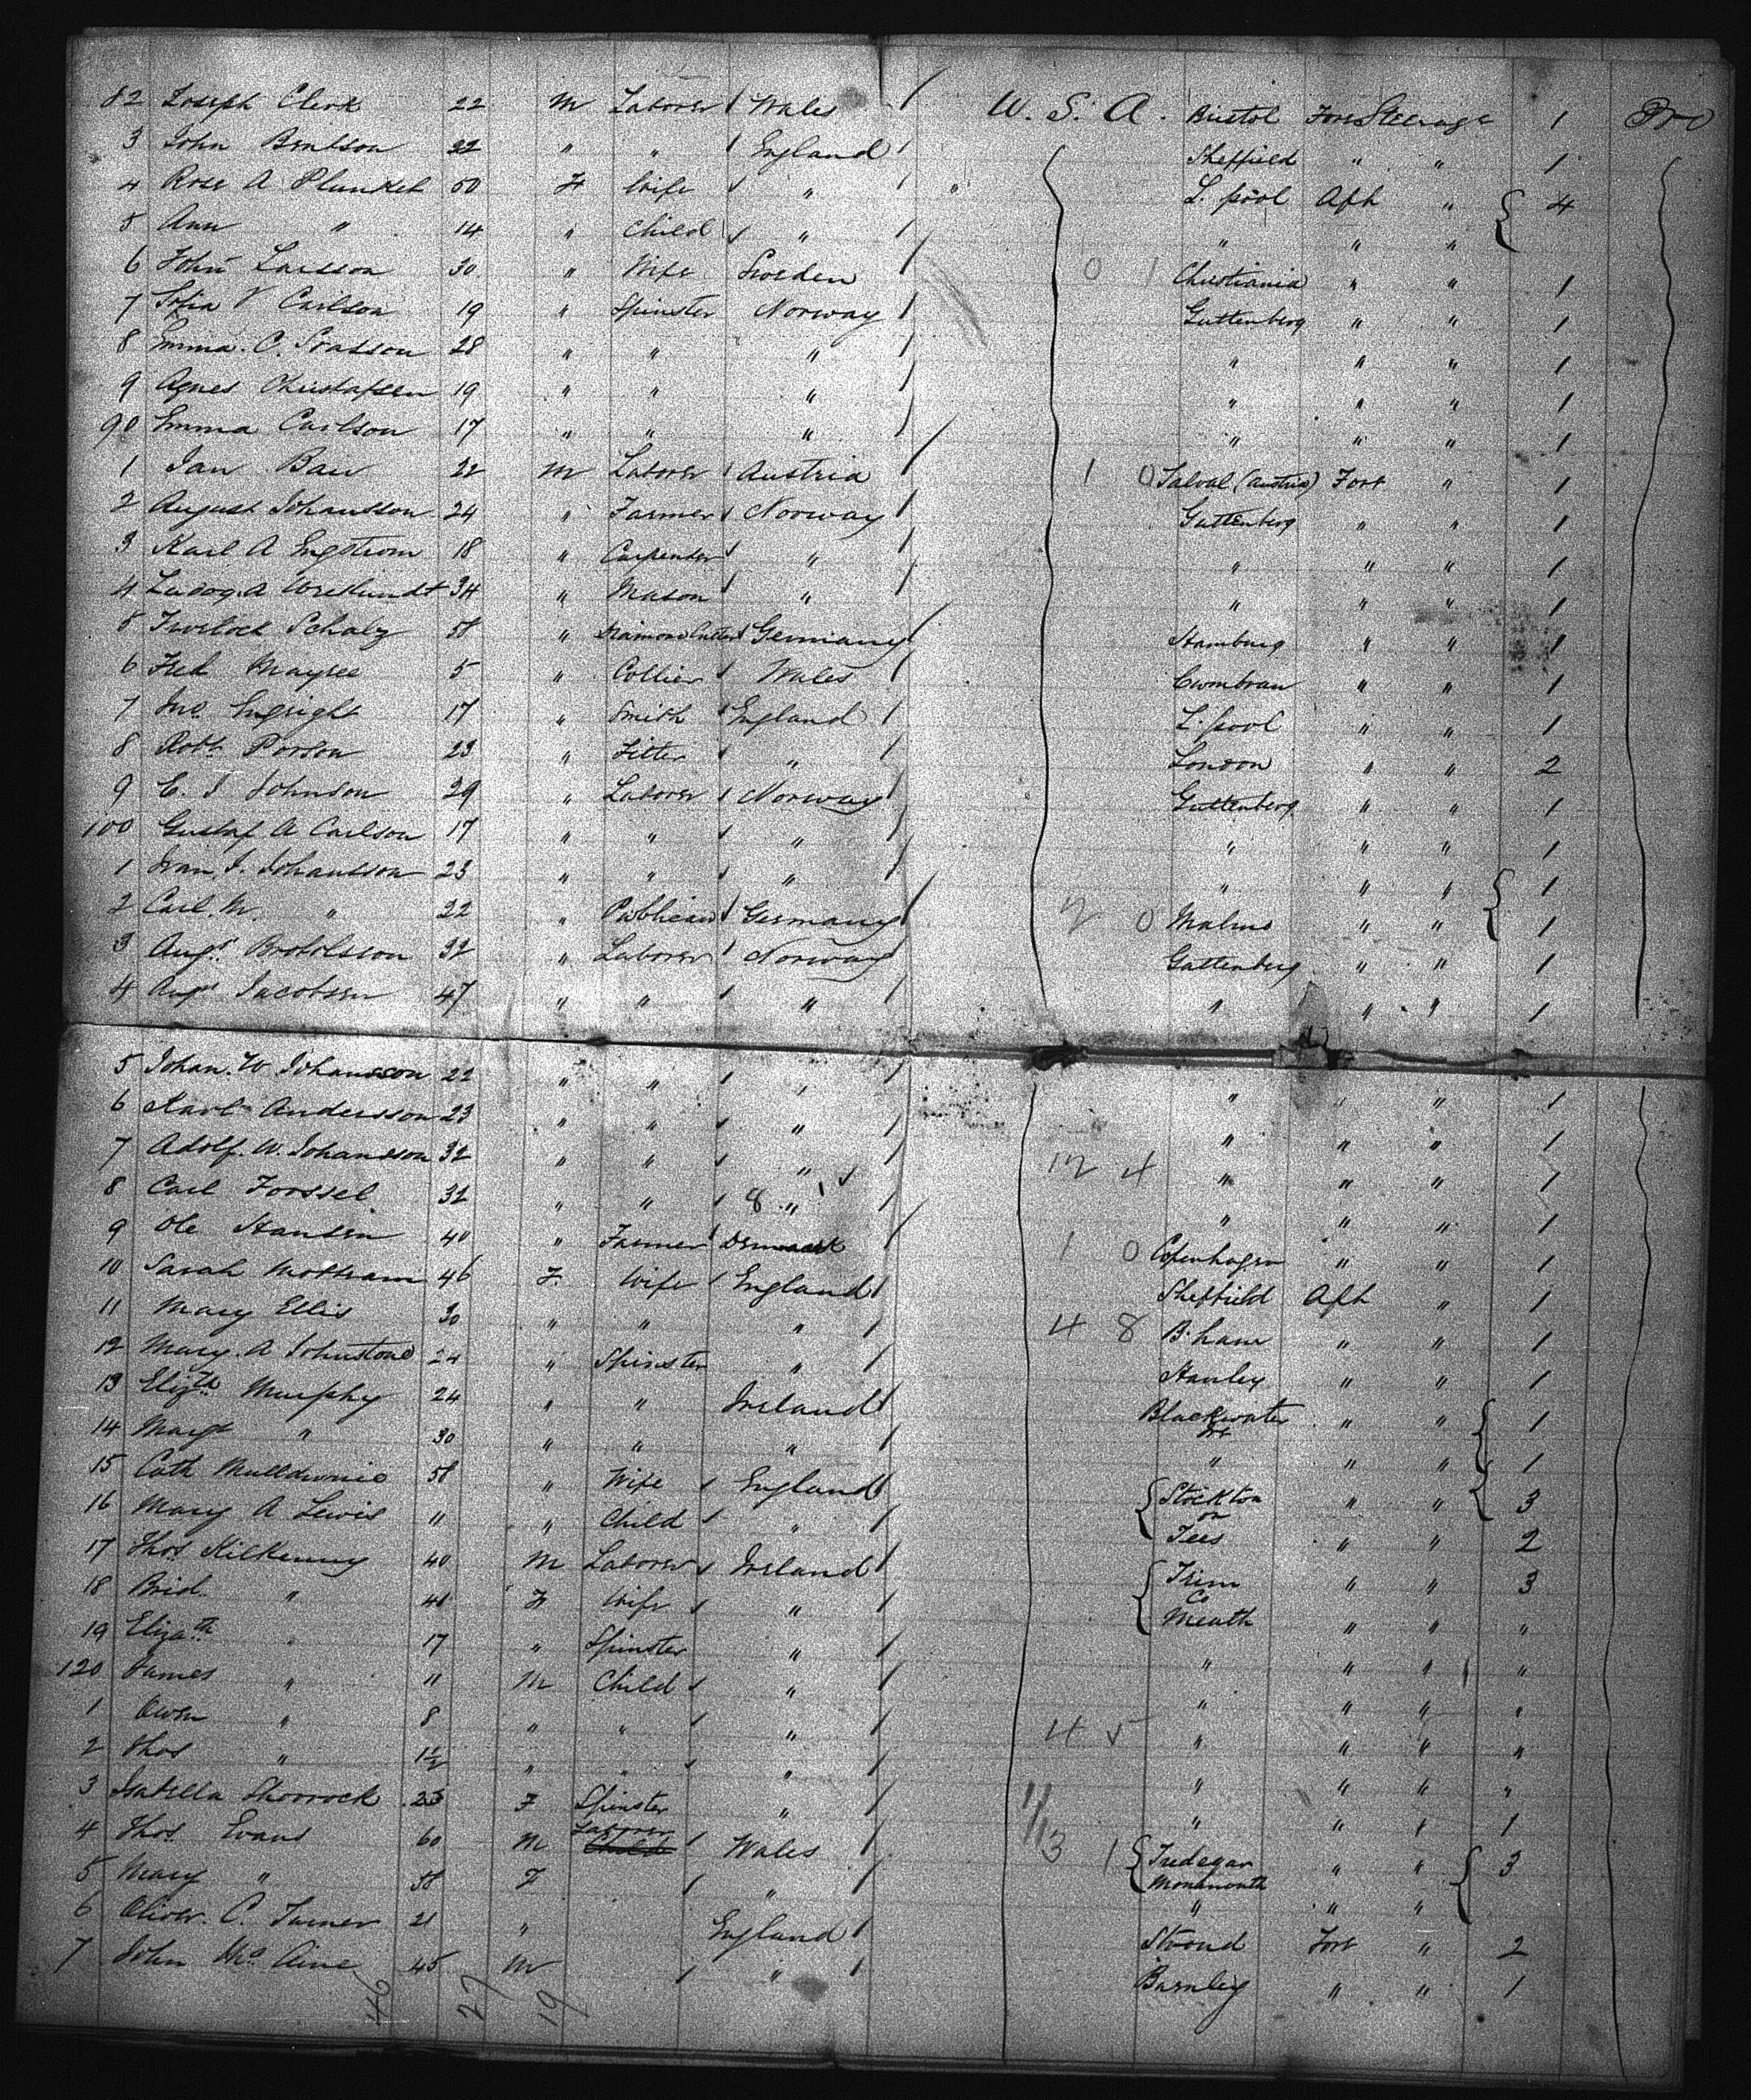 82 Joseph Clerk 22 M Laborer Wales U. S. A. Bristol Fore Steerage 1 Pro
3 John Bentson 22 " " England Sheffield " " 1
4 Rose A Plunket 50 F Wife " " L. pool Aft " 4
5 Ann " 14 " Child " " " "
6 John Larsson 30 " Wife Sweden 0 1 Christiania " " 1
7 Sofia V Carlson 19 " Spinster Norway Guttenberg " " 1
8 Emma. C. 28 " " " " " " 1
9 Agnes 19 " " " " " " 1
90 Emma Carlson 17 " " " " " " 1
1 Jan 22 M Laborer Austria 1 0 (Austria) Fort " 1
2 August Johansson 24 " Farmer Norway Guttenberg " " 1
3 Karl A Engstrom 18 " Carpenter " " " " 1
4 34 " Mason " " " " 1
5 Schalz 58 " Diamond Cutter Germany Hamburg " " 1
6 Fred 5 " Collier Wales Cwmbran " " 1
7 Jno. Enright 17 " Smith England L. pool " " 1
8 Robt. Porson 23 " Fitter " London " " 2
9 C. J Johnson 29 " Laborer Norway Guttenberg " " 1
100 Gustaf A Carlson 17 " " " " " " 1
1 Johansson 23 " " " " " " 1
2 Carl. " 22 " Publican Germany 2 0 Malmo " " 1
3 Augt. 32 " Laborer Norway Guttenberg " " 1
4 Augt. Jacobsen 47 " " " " " " 1
5 Johan. W. Johansson 22 " " " " " " 1
6 Karl Andersson 23 " " " " " " 1
7 Adolf. W. Johansson 32 " " " 12 4 " " " 1
8 Carl Forssel 32 " " 8 " " " " 1
9 Ole Hansen 40 " Farmer Denmark 1 0 Copenhagen " " 1
10 Sarah Mottram 46 F. Wife England Sheffield Aft " 1
11 Mary Ellis 30 " " " 4 8 B. ham " " 1
12 Mary. A Johnstone 24 " Spinster " Hanley " " 1
13 Elizth Murphy 24 " " Ireland Blackwater " " 1
14 Margt " 30 " " " " " " 1
15 Cath 58 " Wife England Stockton " " 3
16 Mary A Lewis 11 " Child " on Tees " " 2
17 Thos. Kilkenny 40 M Laborer Ireland Trim " " 3
18 Brid. " 40 F Wife " Co Meath " " "
19 Elizath " 17 " Spinster " " " " "
120 James " 11 M Child " " " " "
1 Owen " 8 " " " 4 5 " " " "
2 Thos " 1½ " " " " " " "
3 Isabella Shorrock 23 F Spinster " 11 " " " 1
4 Thos. Evans 60 M Laborer Child Wales 11/13 1 Tredegar " " 3
5 Mary " 58 F " Monmouth " " "
6 Oliver. C. Turner 21 " England Stroud Fort " 2
7 John 45 M " Burnley " " 1
46 27 19